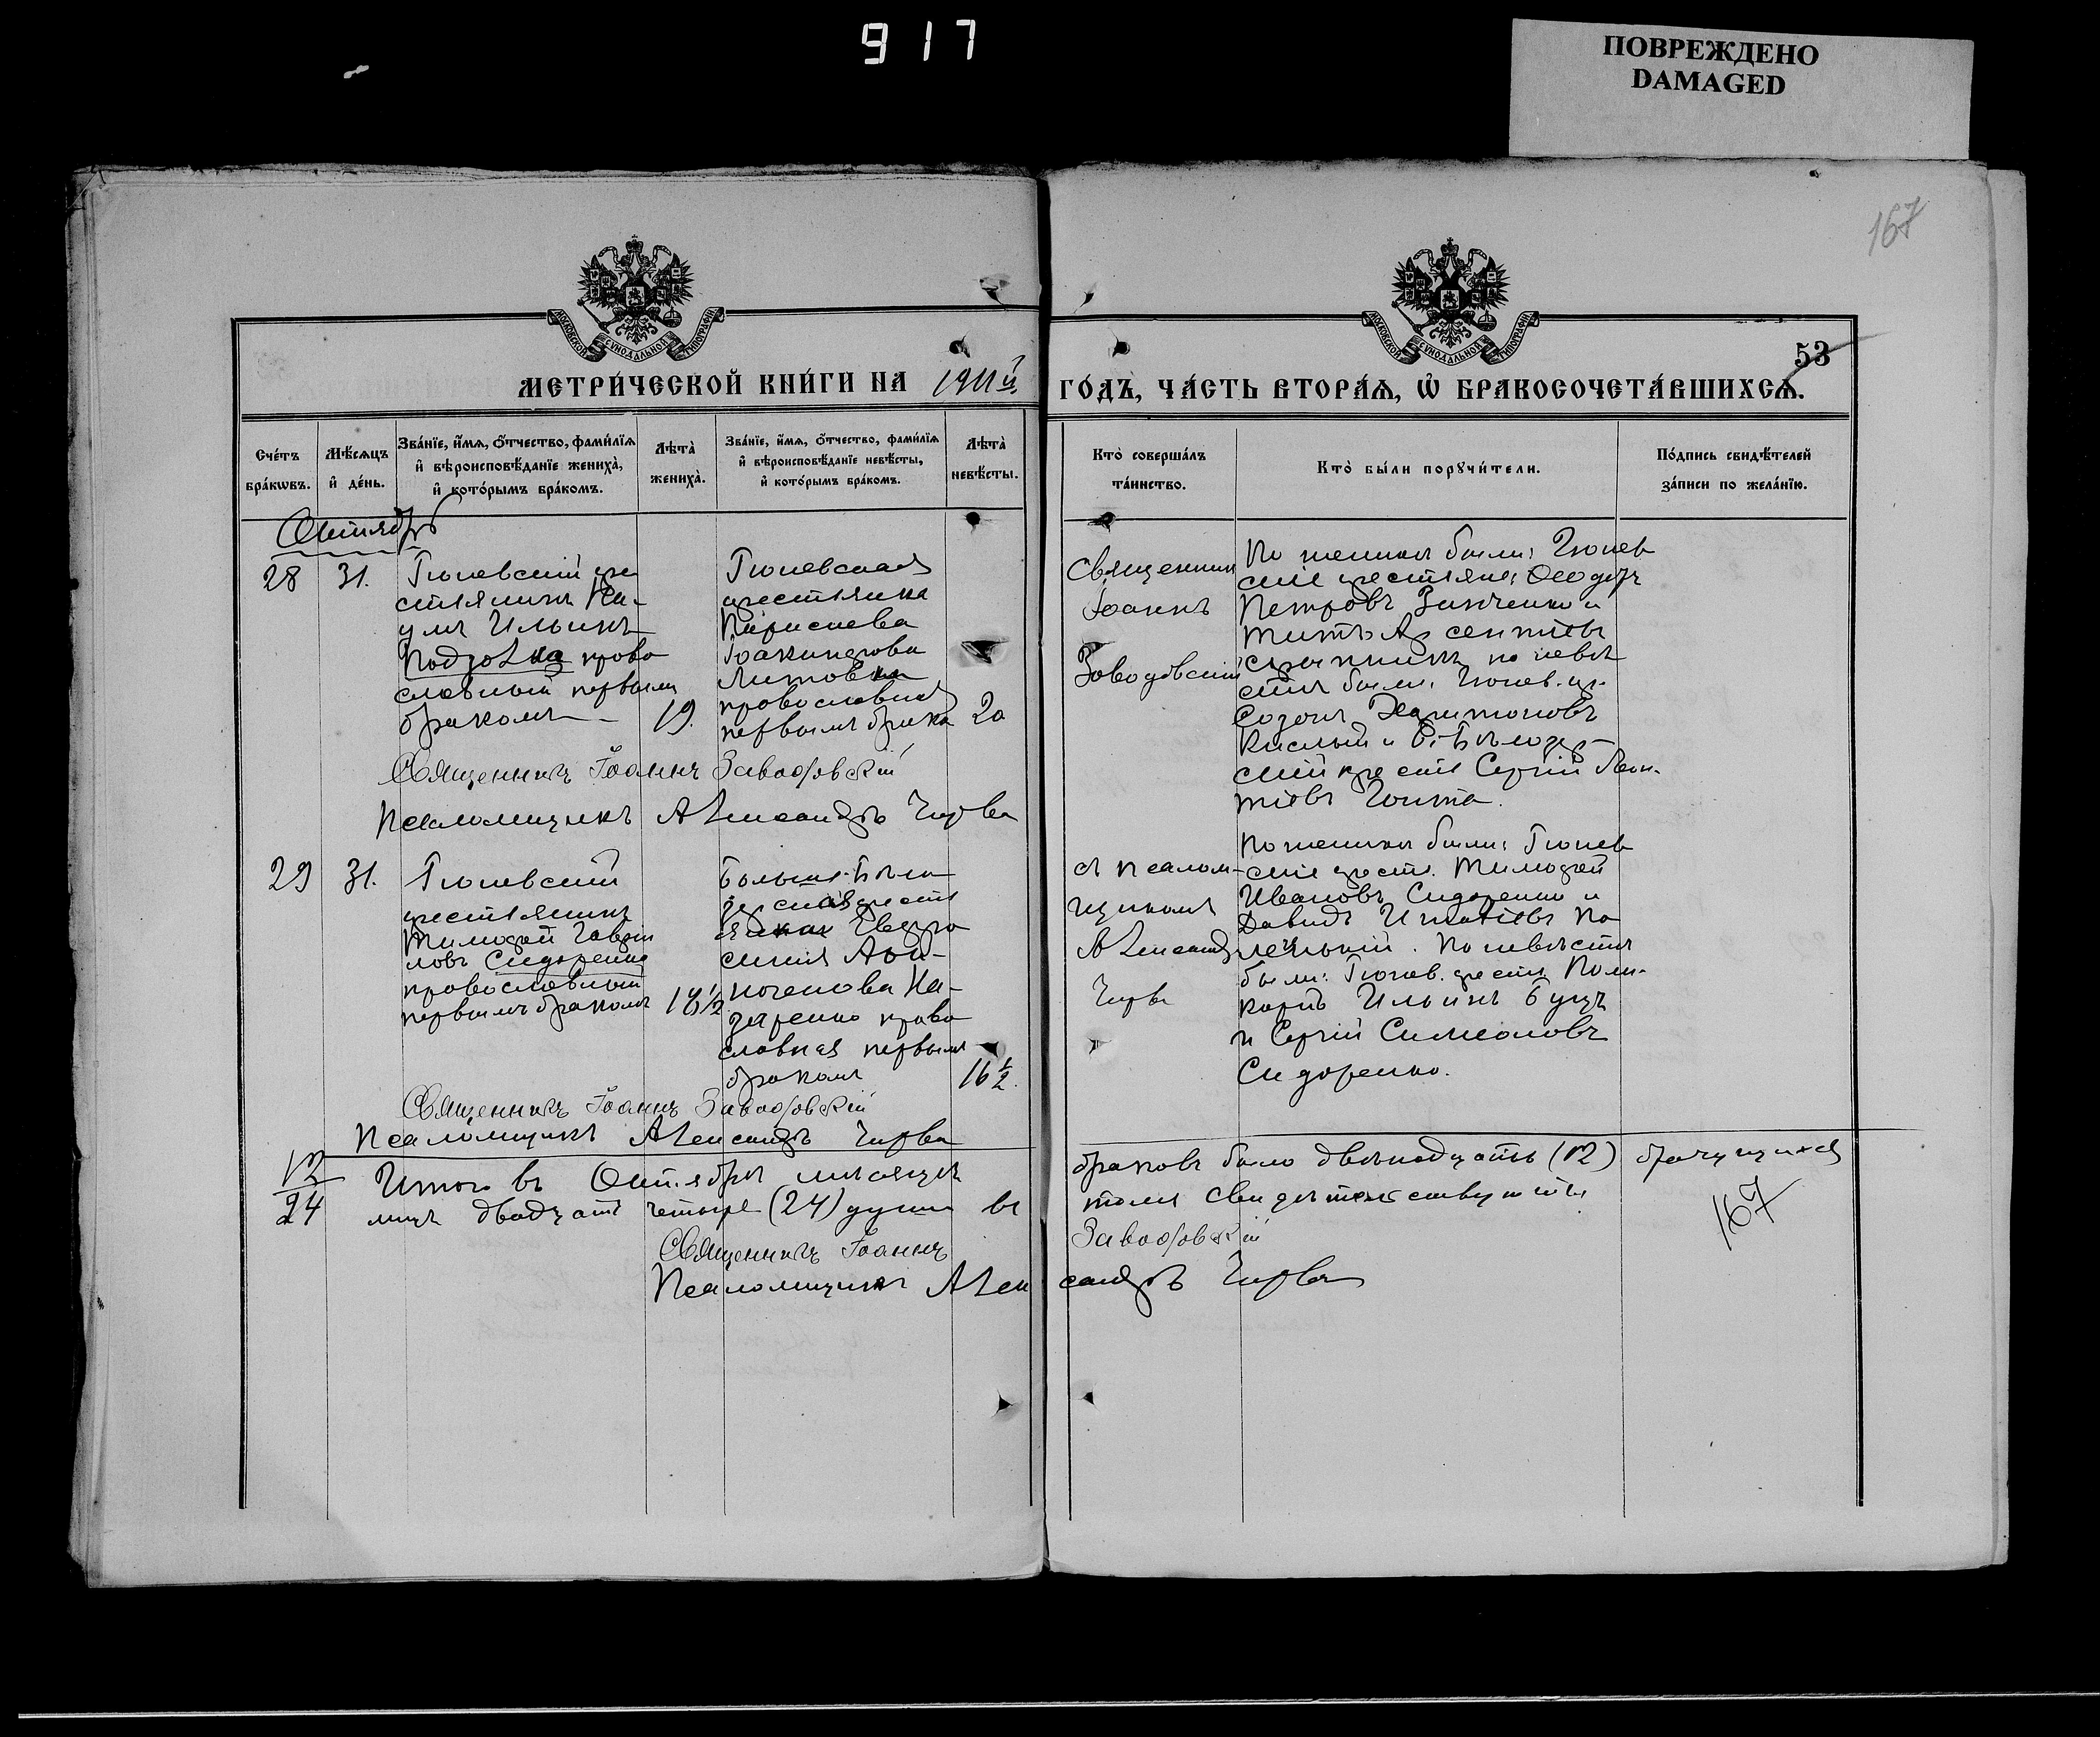 917
ПОВРЕЖДЕНО
DAMAGED
167
МОСКОВСКОЙ СУНОДАЛЬНОЙ ТИПОГРАФІИ
МОСКОВСКОЙ СУНОДАЛЬНОЙ ТИПОГРАФІИ
53
МЕТРИ́ЧЕСКОЙ КНИ́ГИ НА 1911 й
ГО́ДЪ, ЧА́СТЬ ВТОРА́Ѧ, Ѽ БРАКОСОЧЕТА́ВШИХСѦ.
Сче́тъ бра́кѡвъ.
Мѣ́сѧцъ и҆ де́нь.
Зва́нїе, и҆́мѧ, ѻ҆́тчество, фами́лїѧ
и҆ вѣроисповѣ́данїе жениха̀,
и҆ кото́рымъ бра́комъ.
Лѣта̀ жениха̀.
Зва́нїе, и҆́мѧ, ѻ҆́тчество, фами́лїѧ
и҆ вѣроисповѣ́данїе невѣ́сты,
и҆ кото́рымъ бра́комъ.
Лѣта̀ невѣ́сты.
Кто̀ соверша́лъ та́инство.
Кто̀ бы́ли порꙋчи́тели.
По́дпись свидѣ́телей за́писи по жела́нїю.
Октябрь
28
31.
Гюневскій кре
стьянинъ На-
умъ Ильинъ
Подзолка право
славный первымъ
бракомъ
19.
Гюневская
крестьянка
Литовка
православная
первымъ брако
20
Священник
Іоаннъ
Заводовскій
По женихѣ были: Гюнев
скіе крестьяне: Ѳеодоръ
Петровъ Зинченко и
Титъ Арсентіевъ
по невѣ
стѣ были: Гюнев. кр.
Созонъ Харитоновъ
Кислый и Б.-Бѣлозер-
скій крест. Сергій Леон-
тіевъ
Священникъ Іоаннъ Заводовскій
Псаломщикъ Александръ Чирва
29
31.
Гюневскій
крестьянинъ
Тимоѳей Гаврии
ловъ Сидоренко
православный
первымъ бракомъ
18 1/2
Больше-Бѣло
зерская крест
янка Евдро
синія
На-
заренко право
славная первымъ
бракомъ
16 1/2.
съ псалом-
щикомъ
Александр
Чирва
По женихѣ были: Гюнев
скіе крест. Тимоѳей
Ивановъ Сидоренко и
Давидъ Игнатіевъ По
ленькій. По невѣстѣ
были: Гюнев. крест. Поли-
карпъ Ильинъ Буцъ
и Сергій Симеоновъ
Сидоренко.
Священникъ Іоаннъ Заводовскій
Псаломщикъ Александръ Чирва
12
24
Итого въ Октябрѣ мѣсяцѣ браковъ было двѣнадцать (12) брачущихся
лицъ двадцать четыре (24) души въ томъ свидѣтельствуютъ
167
Священникъ Іоаннъ Заводовскій
Псаломщикъ Александръ Чирва